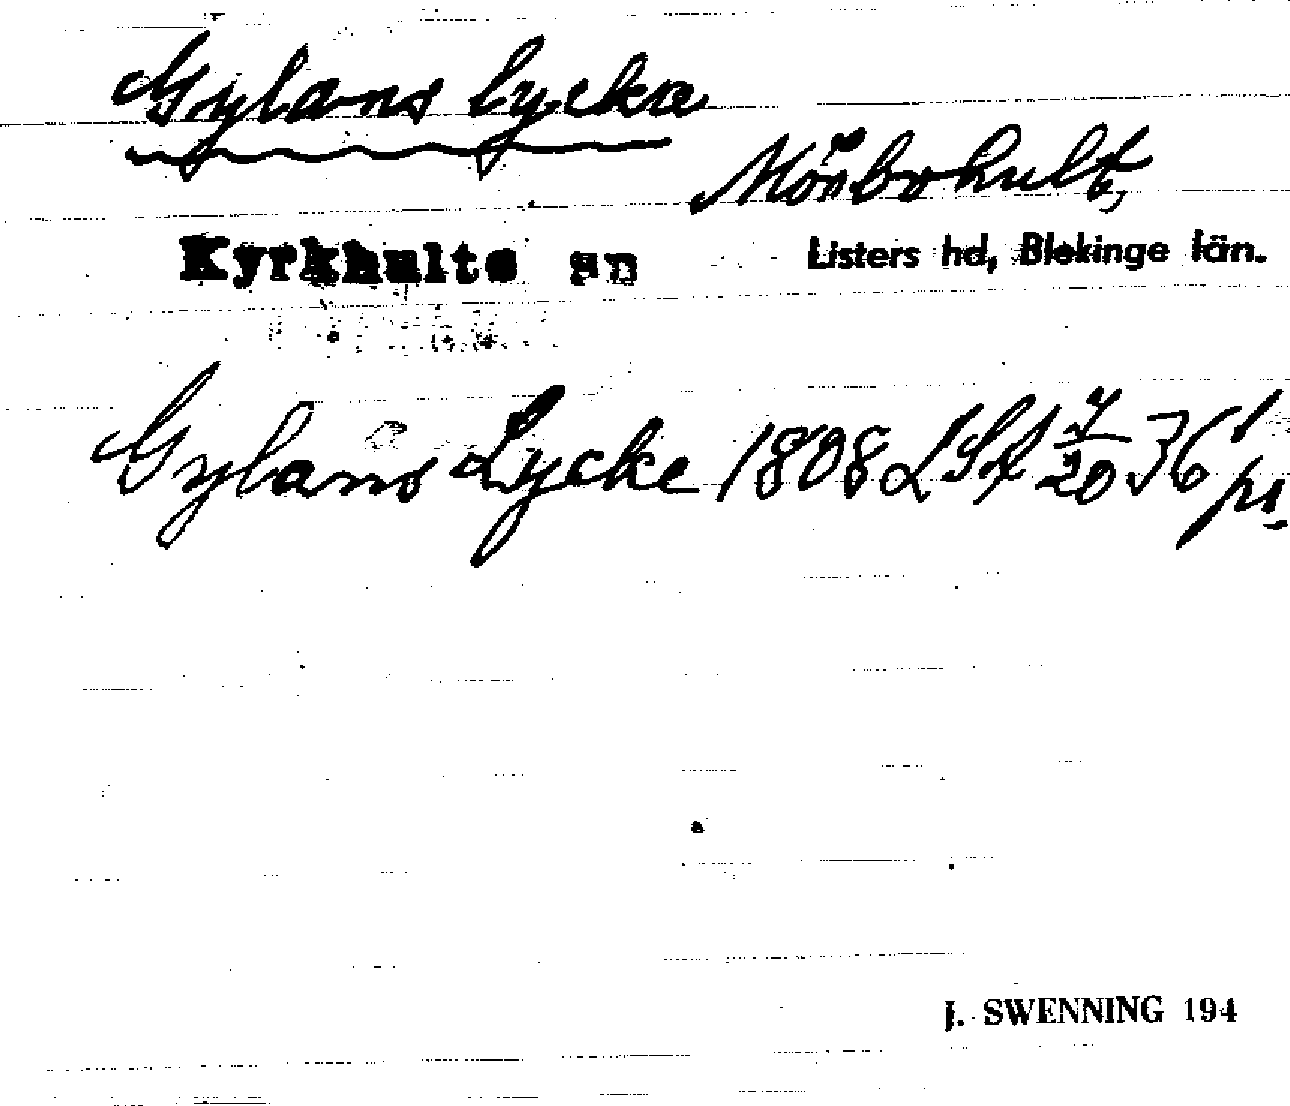 Gylans lycka
Mönbohult,
Kyrkhults sn Listers hd, Blekinge län.
Gylans Lycke 1808 LSA 7/20 36 1
J. SWENNING 194